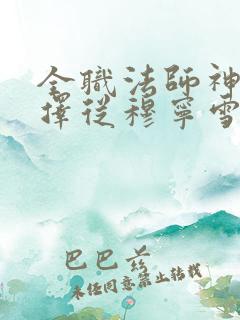 全職法師神
擇從穆寧雪
巴巴爷
未经同意禁止转载